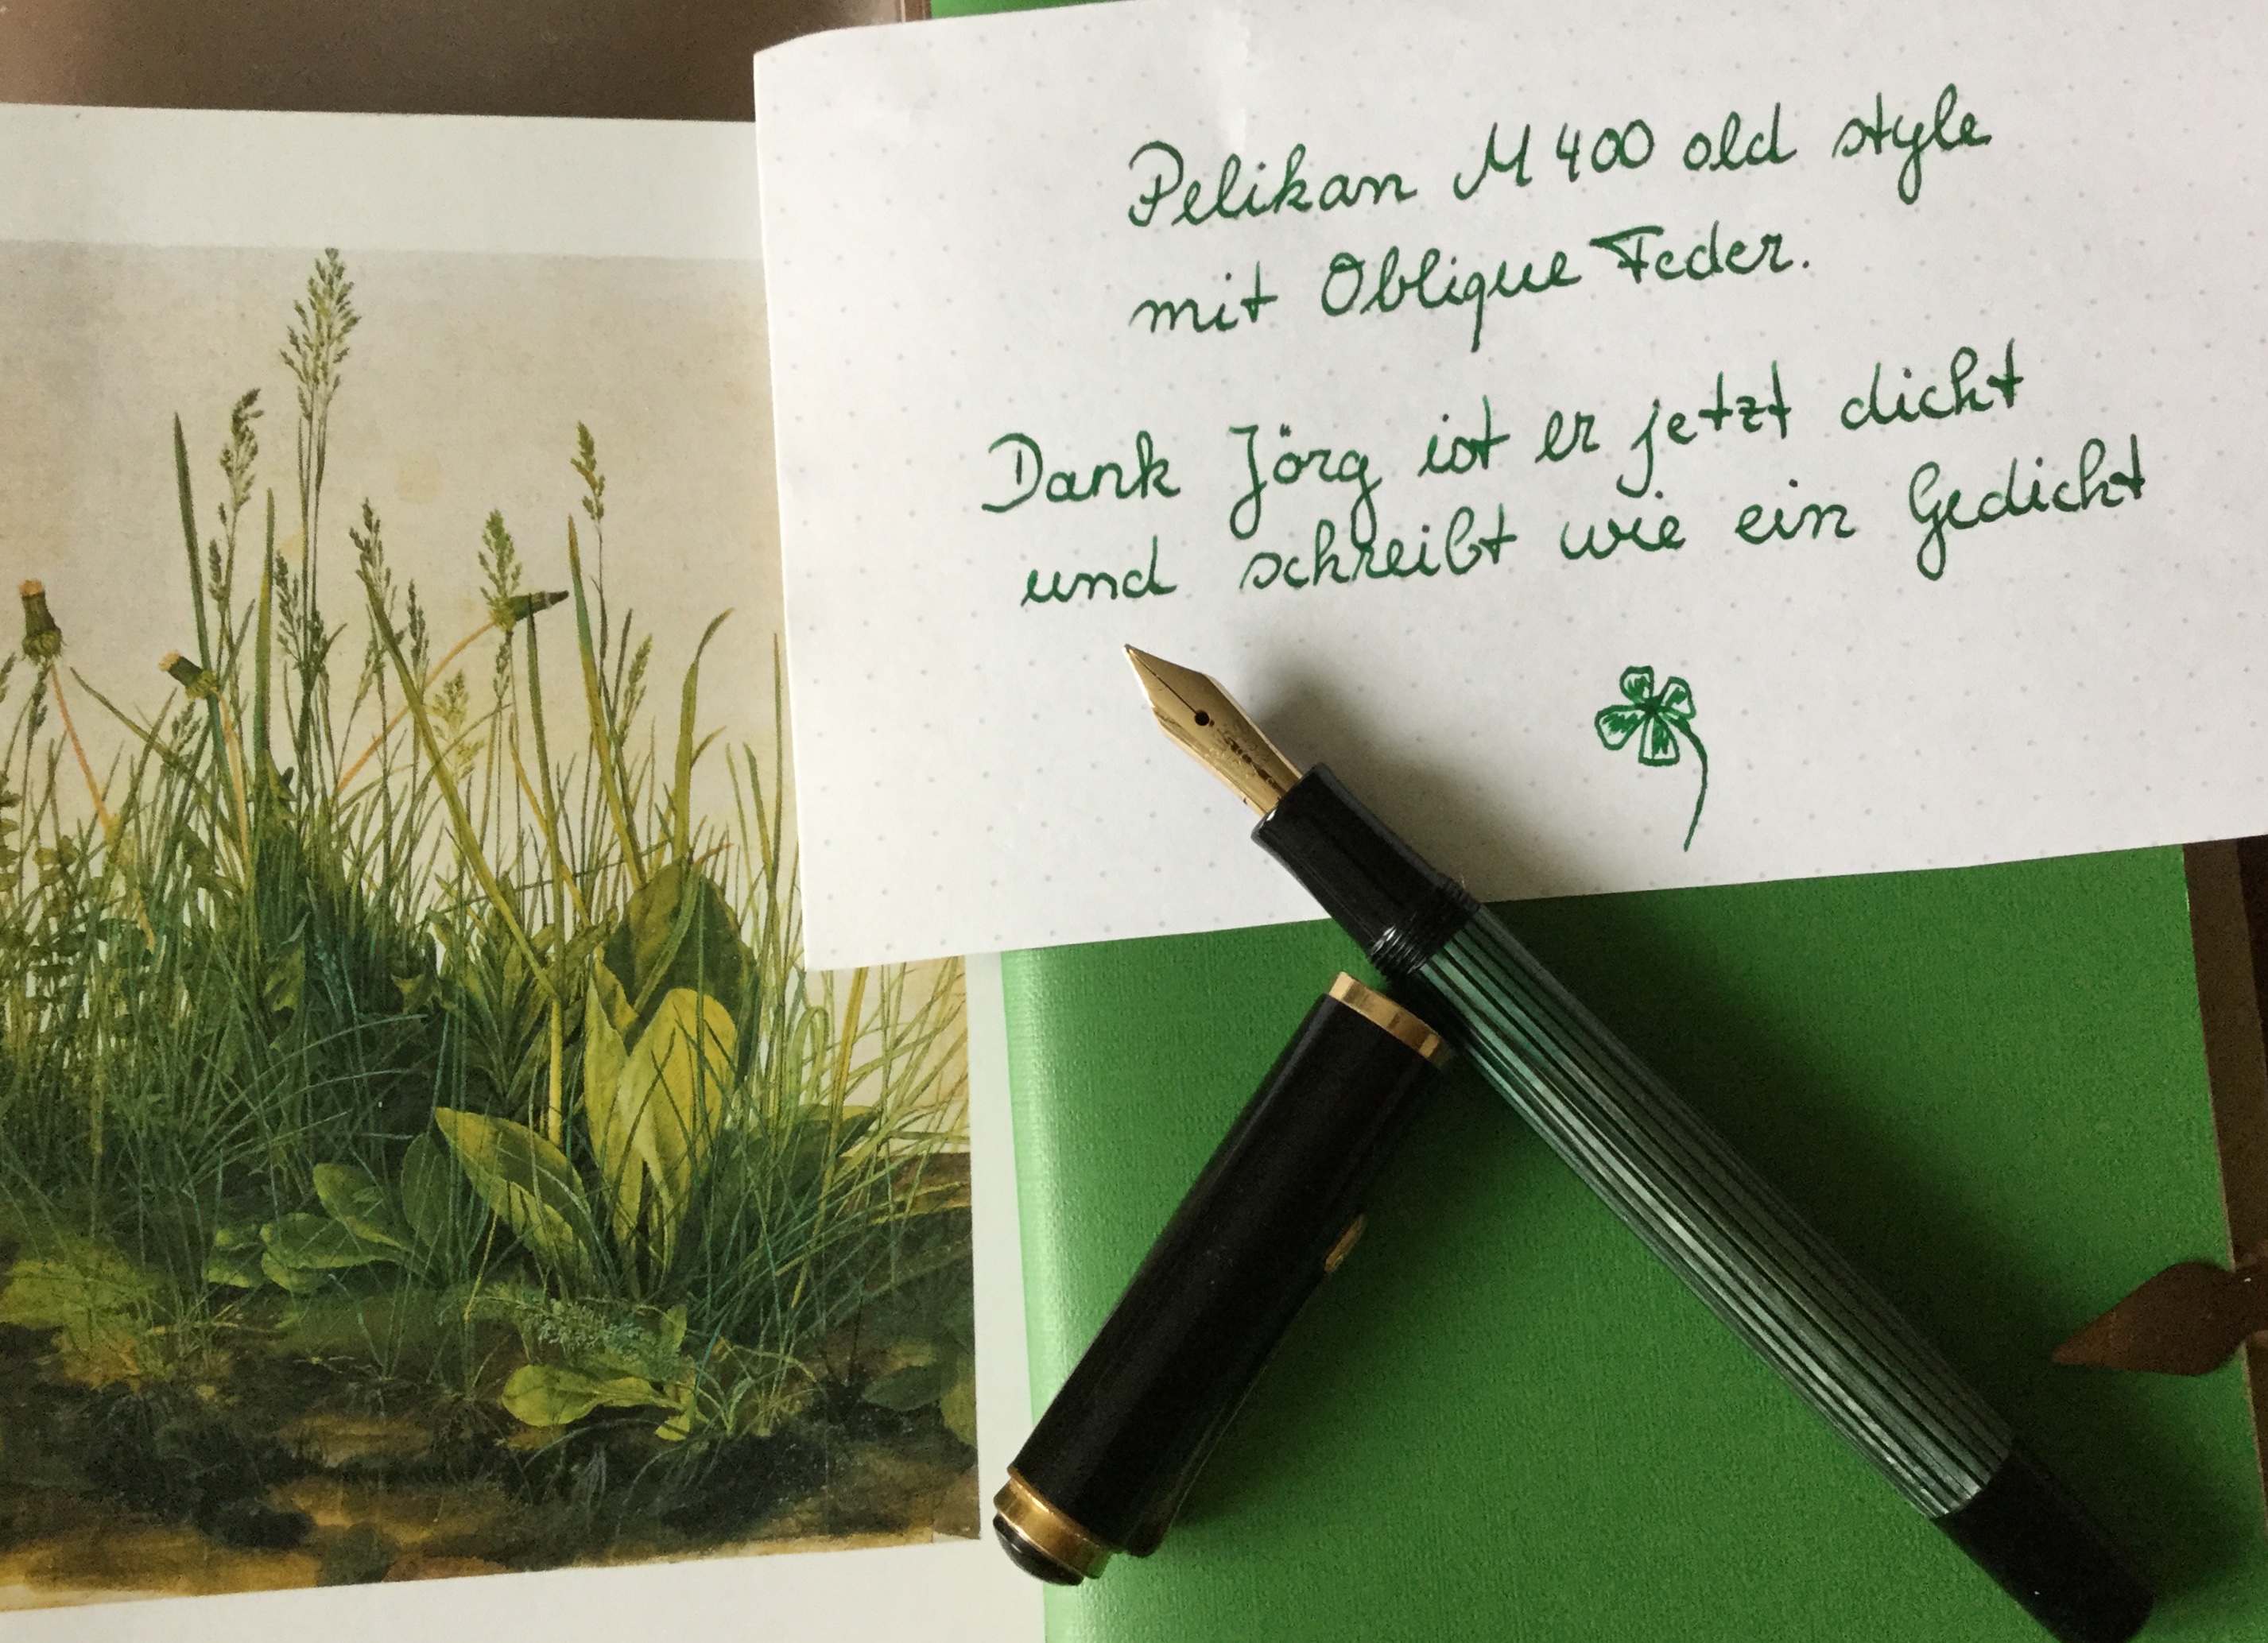 Pelikan M 400 old style
mit Oblique Feder.
Dank Jörg ist er jetzt dicht
und schreibt wie ein Gedicht